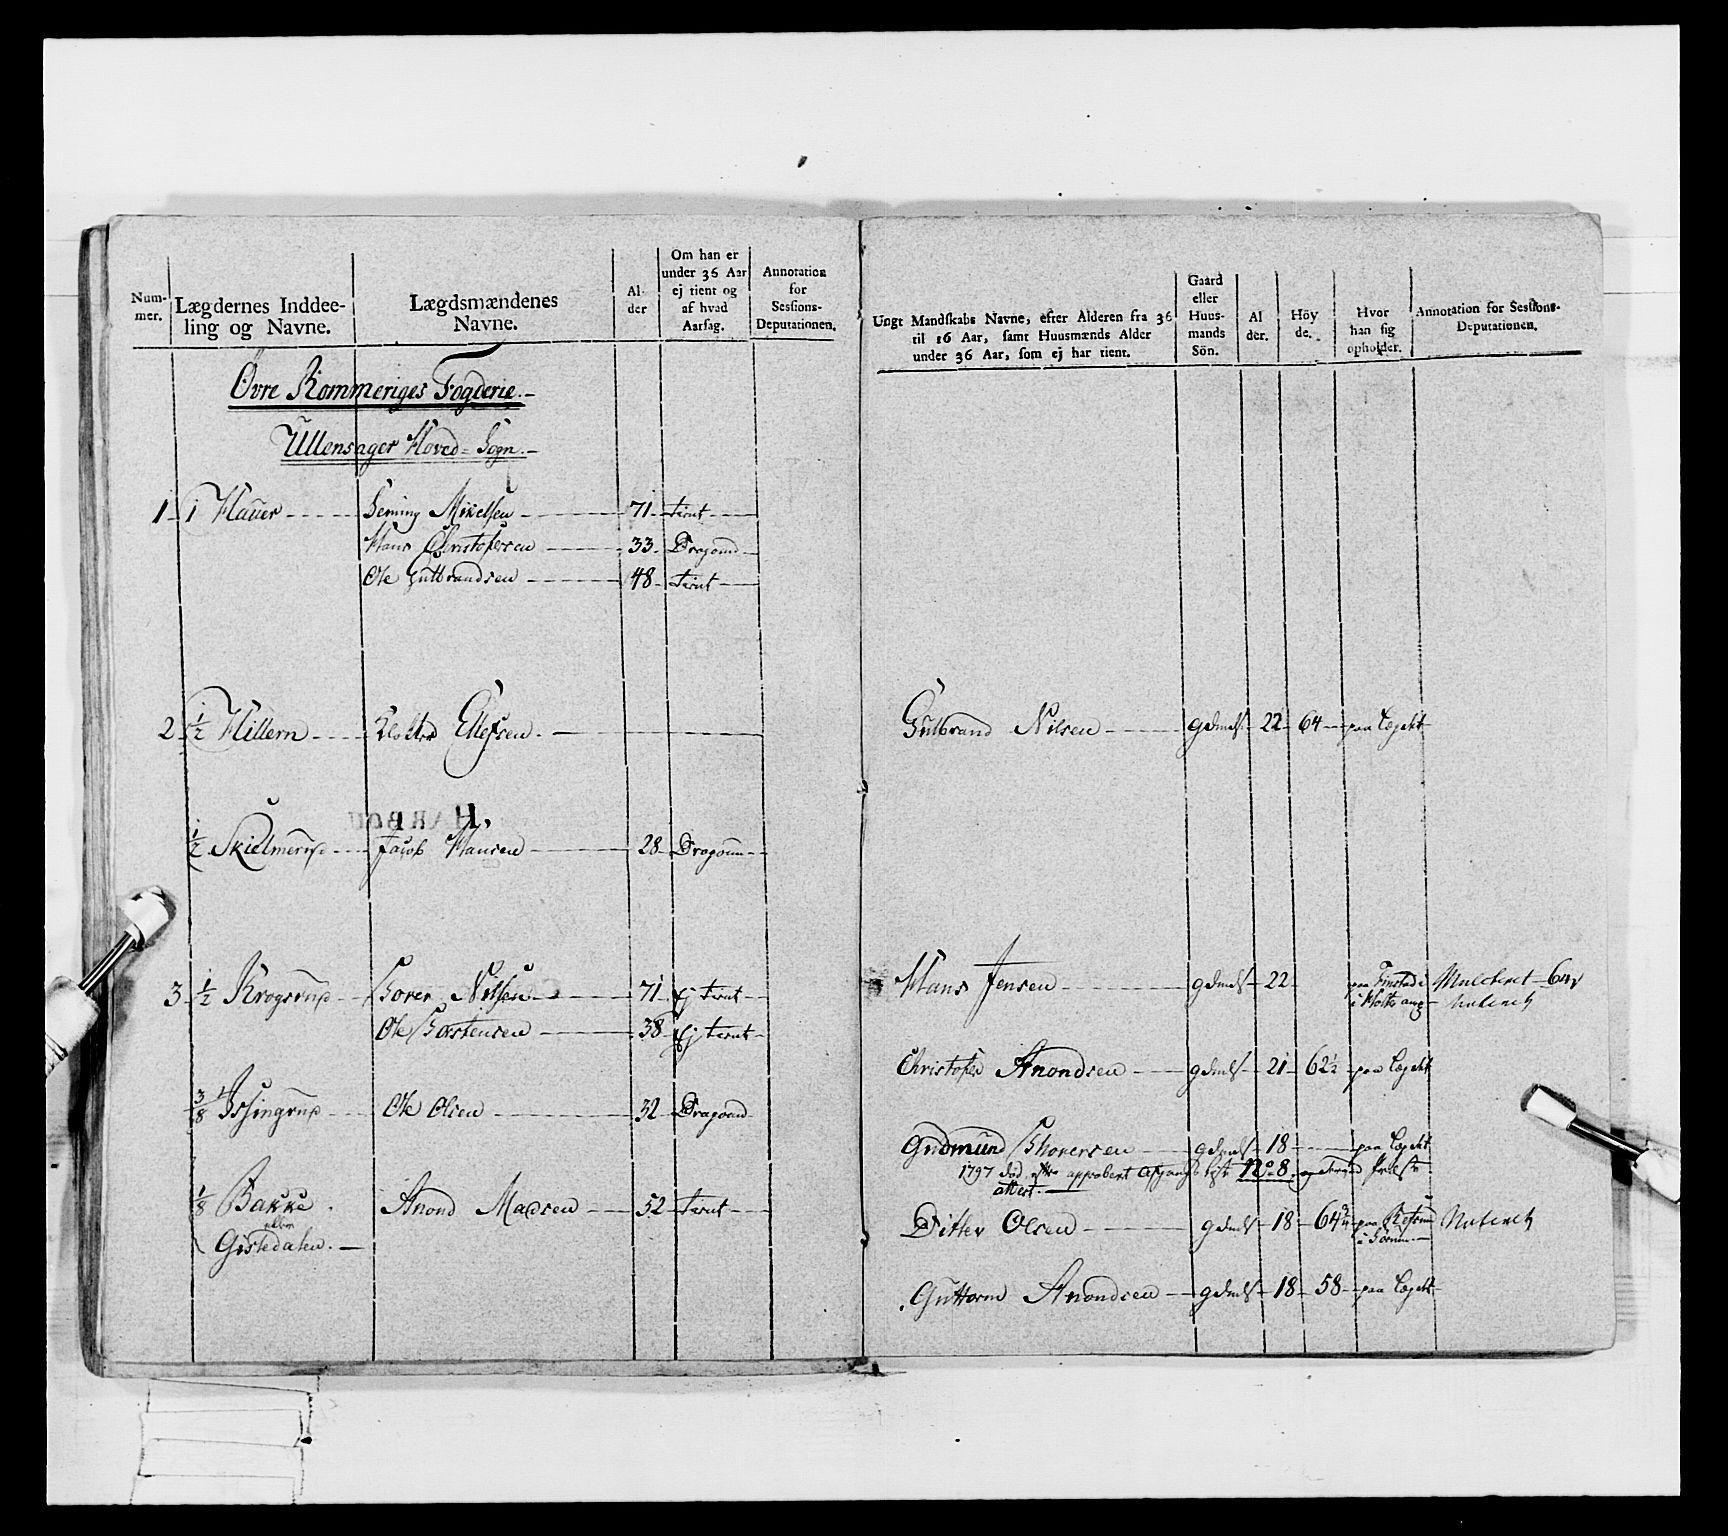 Num-
mer.
Lægdernes Inddee-
ling og Navne.
Lægdsmændenes
Navne.
Al-
der
Om han er
under 36 Aar
ej tient og
af hvad
Aarsag.
Annotation
for
Sessions-
Deputationen.
Övre Rommeriges Fogderie.
Ullensager Hoved-Sogn.
1 1 Hauer Mikelsen 71 tient
Hans Christofersen 33 Dragoun
Ole Gulbrandsen 48 tient
2 1/2 Hillern Ellefsen.
1/2 Jacob Hansen 28 Dragoun
3 1/2 Krogsrup Nilsen 71 Ej tient
Ole Torstensen 38 Ej tient
3/8 Ole Olsen 32 Dragoun
1/8 Bakke Anond Madsen 52 tient
eller
Gistedalen.
Ungt Mandskabs Navne, efter Alderen fra 36
til 16 Aar, samt Huusmænds Alder
under 36 Aar, som ej har tient.
Gaard
eller
Huus-
mands
Sön.
Al
der.
Höy
de.
Hvor
han sig
opholder.
Annotation for Sessions-
Deputationen.
Gulbrand Nilsen gdmds 22 64 paa Lægdet
Hans Jensen gdmds 22 paa i
i
Christofer Anondsen gdmds 21 62 1/2 paa Lægdet
Gudmund gdmds 18 paa Lægdet
1797 død efter approbert Afgangs Liste No 8
attest.
Ditter Olsen gdmds 18 paa
i
Guttorm Anondsen gdmds 18 58 paa Lægdet